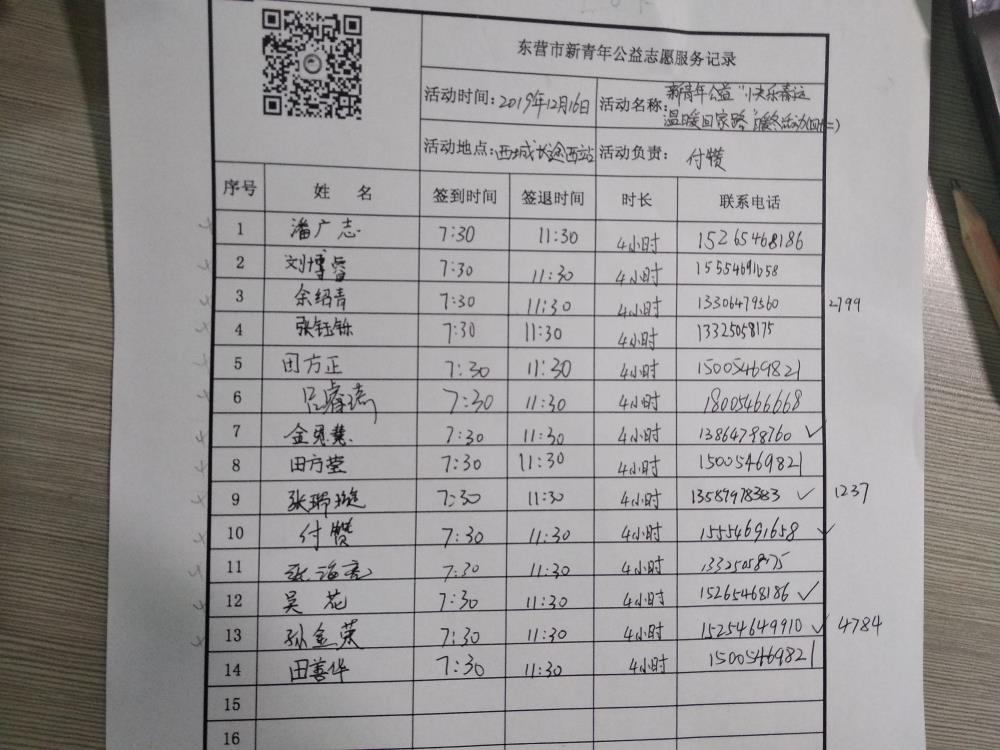 东营市新青年公益志愿服务记录
活动时间:2019年12月16日 活动名称:新青年公益“小候乐春运
温暖回家路”
活动地点:西城长途西站 活动负责: 付赞
序号 姓 名 签到时间 签退时间 时长 联系电话
1 潘广志 7:30 11:30 4小时 15265468186
2 刘博睿 7:30 11:30 4小时 15554691658
3 余绍青 7:30 11:30 4小时 13306479560 2799
4 张钰铄 7:30 11:30 4小时 13325058175
5 田方正 7:30 11:30 4小时 15005469821
6 吕睿 7:30 11:30 4小时 18005466668
7 金 慧 7:30 11:30 4小时 13864798760 ✓
8 田方莹 7:30 11:30 4小时 15005469821
9 张瑞璇 7:30 11:30 4小时 13589978383 ✓ 1237
10 付赞 7:30 11:30 4小时 15554691658 ✓
11 张海亮 7:30 11:30 4小时 13325058175
12 吴花 7:30 11:30 4小时 15265468186 ✓
13 孙金荣 7:30 11:30 4小时 15254649910 ✓ 4784
14 田善华 7:30 11:30 4小时 15005469821
15
16